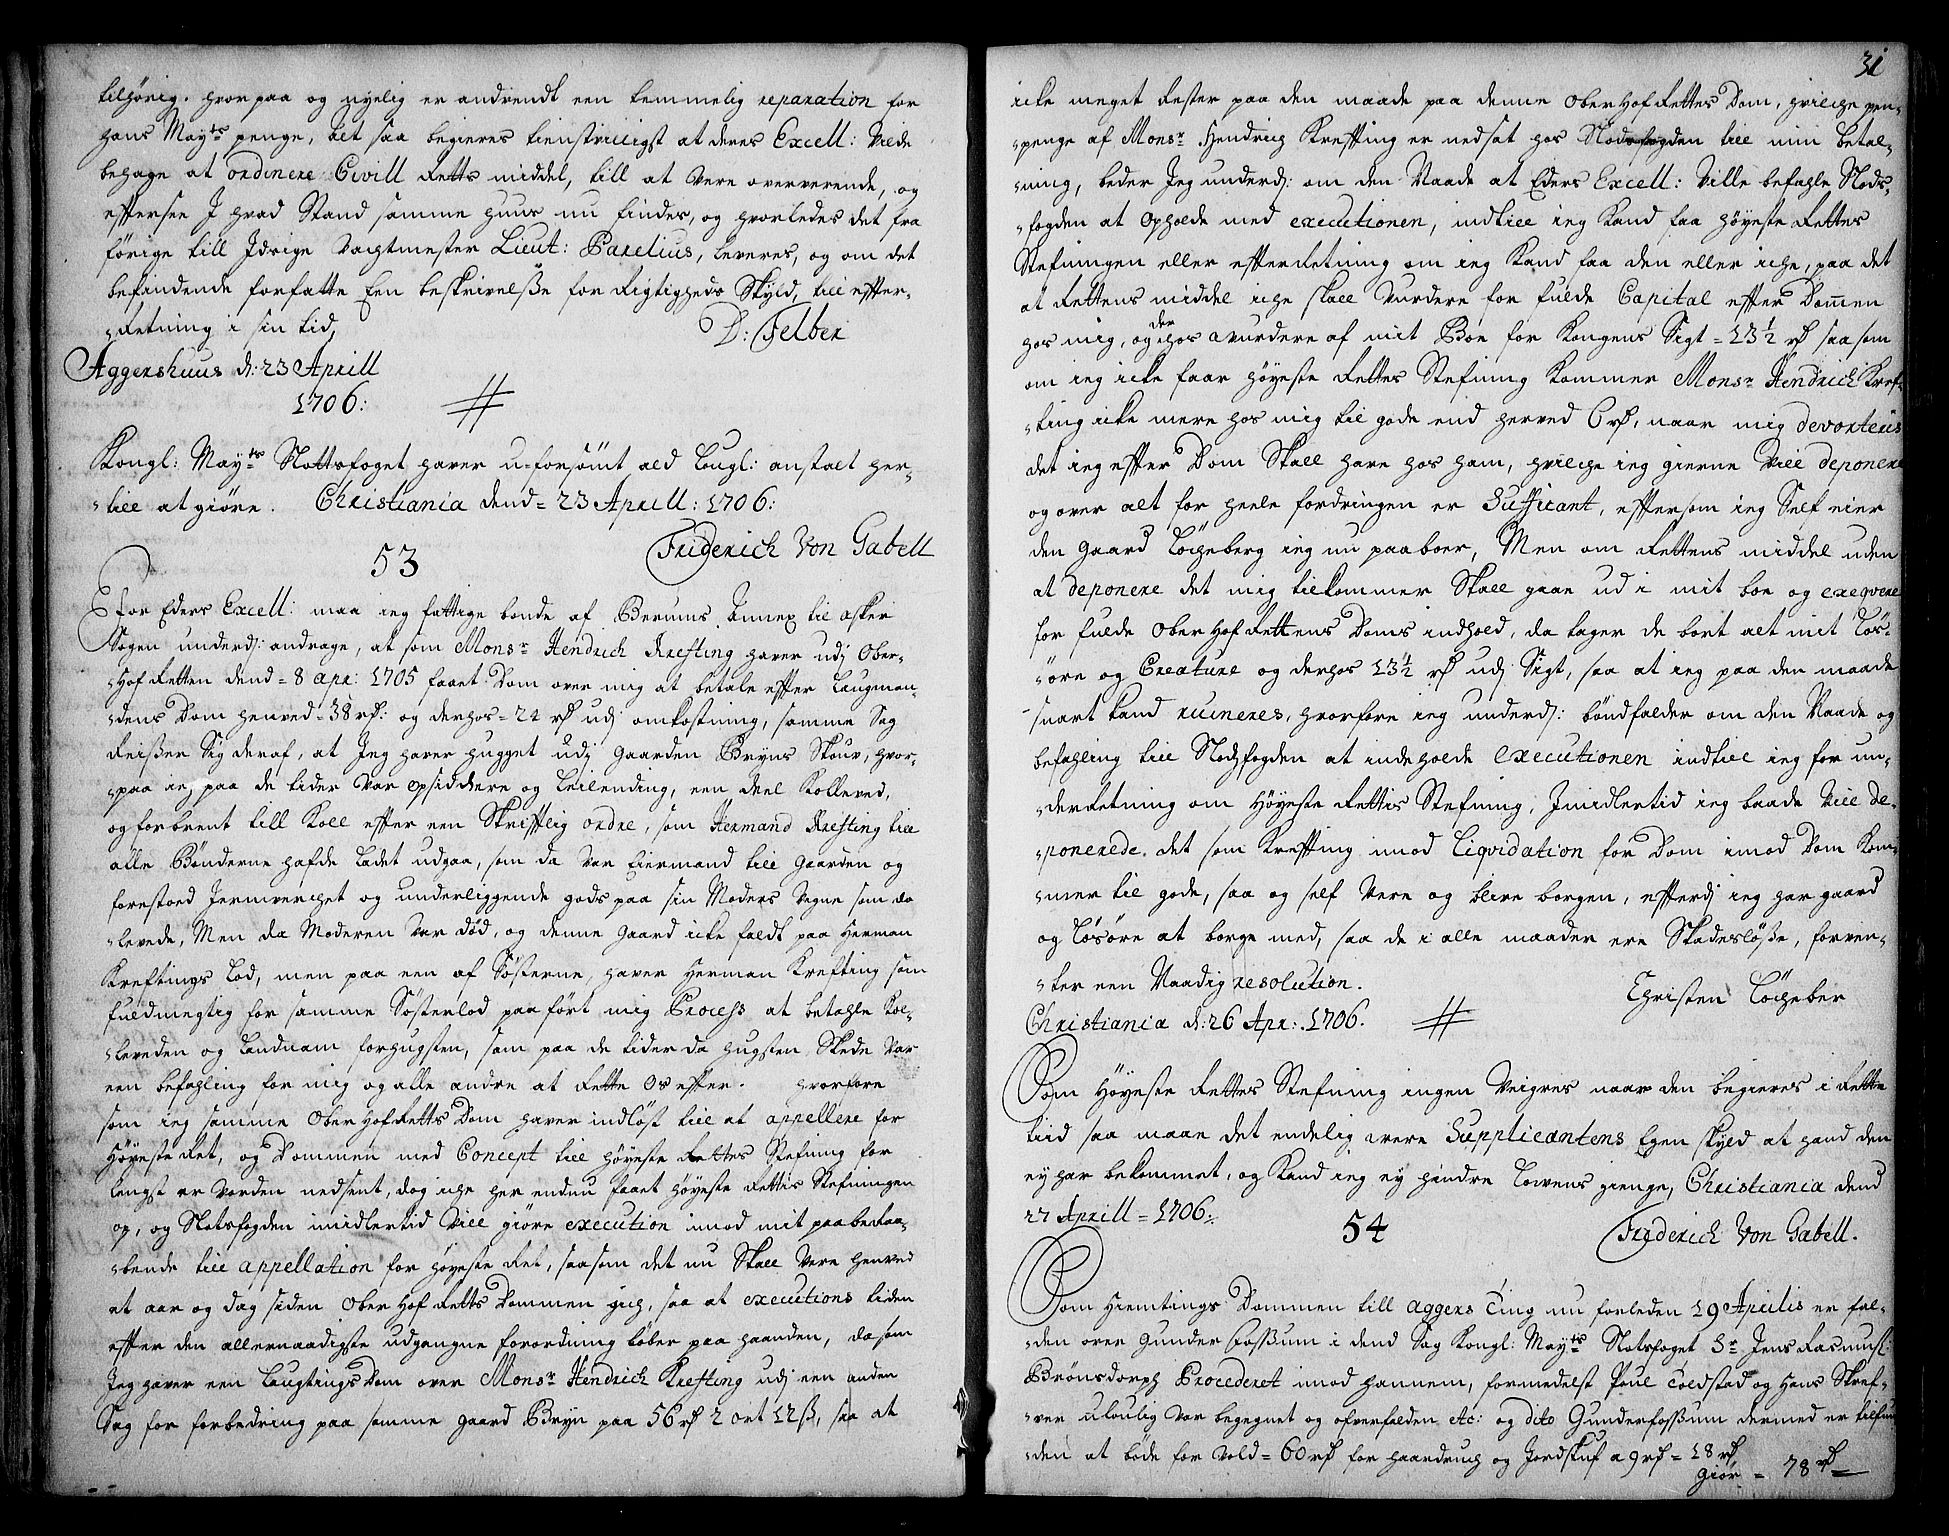 tilhørig. hvor paa og nyelig er andvendt een temmelig reparation for
hans Mayts penge, alt saa begieres tienstvilligst at deres Excell: Vilde
behage at ordinere Civill Retts middel, till at Vere oververende, og
effersee I hvad Stand samme huus nu findes, og hvorledes det fra
forige till Idrige Vachtmester Lieut: Parelius, leveres, og om det
befindende forfatte Een beskrivelsse for Rigtigheds Skyld, till effter-
-Retning i sin tid,
D: Felber
Aggershuus d: 23 Aprill
1706:
Kongl: Mayts Slottsfoget haver u-forsømt ald lougl: anstalt her-
-till at giøre. Christiania dend = 23 Aprill: 1706:
Friderich Von Gabell
53
For Eders Excell: maa ieg fattige bonde af Berums Annex til Asker
Sogen underd: andrage, at som Monsr Hendrich Krefting haver udj Ober-
-Hof Retten dend = 8 apr: 1705 faaet Dom over mig at betale effter Laugman-
-dens Dom henved = 38 rd: og derhos = 22 rd udj omkostning, samme Sag
Reisser Sig deraf, at Jeg haver hugget udj gaarden Bryns Skouv, hvor-
-paa ieg paa de tider Var opsiddere og Leilending, een deel Kolleved,
og forbrent till Koll effter een Skrifftlig ordre, som Hermand Krefting till
alle Bønderne hafde ladet udgaa, som da Var Eiermand till gaarden og
forestoed Jernverchet og underliggende gods paa sin Moders Vegne som da
levede, Men da Moderen Var død, og denne gaard icke faldt paa Herman
Kreftings Lod, men paa een af Søsterne, haver Herman Krefting som
fuldmegtig for samme Søsterlod paaført mig Process at betahle Kol-
-leveden og Landnam forhugsten, som paa de tider da hugsten Skede Var
een befahling for mig og alle andre at Rette os effter. hvorfore
som ieg samme Ober Hof Retts Dom haver indløst till at appellere for
Høyeste Ret, og Dommen med Concept till høyeste Rettes Stefning for
lengst er Vorden nedsent, dog iche her endnu faaet høyeste Rettis Stefningen
op, og Slotsfogden imidlertid Vill giøre execution imod mit paaberaa-
-bende till appellation for høyeste Ret, saasom det nu Skall Vere henved
et aar og dag siden Ober Hof Retts Dommen gich, saa at executions tiden
effter den allernaadigste udgangne forordning løber paa haanden, da som
Jeg haver een Laugtings Dom over Monsr Hendrich Krefting udj een anden
Sag for forbedring paa samme gaard Bryn paa 56 rd 2 ort 12 ß, saa at
31
icke meget Rester paa den maade paa denne Ober Hof Rettes Dom, hvilche pen-
-penge af Monsr Hendrich Kreffting er nedsat hos Slodsfogden till min betal-
-ning, beder Jeg underd: om den Naade at Eders Excell: Ville befahle Slods-
-fogden at opholde med executionen, indtill ieg Kand faa høyeste Rettes
Stefningen eller effterRetning om ieg Kand faa den eller iche, paa det
at Rettens middel iche skall Vurdere for fulde Capital effter Dommen
hos mig, og der hos avurdere af mit Boe for Kongens Sigt = 13½ rd saa som
om ieg icke faar høyeste Rettes Stefning Kommer Monsr Hendrich Kref-
-ting icke mere hos mig til gode end herved 6 rd, naar mig devorteris
det ieg effter Dom Skall have hos ham, hvilche ieg gierne Vill deponere
og over alt for heele fordringen er Sufficant, efftersom ieg Self eier
den gaard Løcheberg ieg nu paaboer, Men om Rettens middel uden
at deponere det mig tilkommer Skall gaae ud i mit boe og exeqvere
for fulde Ober Hof Rettens Doms indhold, da tager de bort alt mit Løs-
-øre og Creature og derhos 13½ rd udj Sigt, saa at ieg paa den maade
snart kand ruineres, hvorfore ieg underd: bøndfalder om den Naade og
befahling till Slodsfogden at indeholde executionen indtill ieg for un-
-derRetning om Høyeste Rettis Stefning, Imidlertid ieg baade Vill de-
-ponerede det som Kreffting imod Liqvidation for Dom imod Dom Kom-
-mer til gode, saa og self Vere og blive borgen, effterdj ieg har gaard
og løsøre at borge med, saa de i alle maader ere Skadesløsse, forven-
-ter een Naadig resolution.
Christen Løcheber
Christiania d: 26 Apr: 1706.
Som Høyeste Rettes Stefning ingen Veigres naar den begieres i Rette
tiid saa maae det endelig were Supplicantens Egen skyld at hand den
ey har bekommet, og Kand ieg ey hindre Lowens gienge, Christiania dend
27 Aprill = 1706:
Friderich Von Gabell.
54
Som Hiemtings Dommen till Aggers Ting nu forleden 19 Aprilis er fal-
-den over Gunder Fossum i dend Sag Kongl: Mayts Slotsfoget Sr Jens Rasmus:
Brønsdorph Procederet imod hannem, formedelst Poul Toldstad og Hans Skref-
-ver ulovlig Var begegnet og ofverfalden etc: og dito Gunder fossum dermed er tilfun-
-den at bøde for Vold = 60 rd for haardruch og Jordskuf a 9 rd = 18 rd
Giør = 78 rd